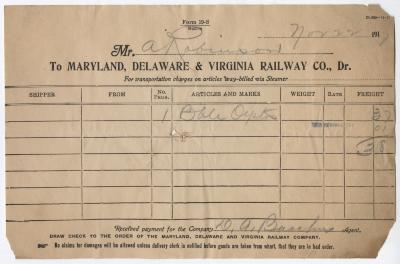 Form 19-8
Nov 22 191
Mr. A Robinson
To MARYLAND, DELAWARE & VIRGINIA RAILWAY CO., Dr.
For transportation charges on articles way-billed via Steamer
SHIPPER FROM No. Pkgs. ARTICLES AND MARKS WEIGHT RATE FREIGHT
1 Bble 37
01
38
Received payment for the Company Agent.
DRAW CHECK TO THE ORDER OF THE MARYLAND, DELAWARE AND VIRGINIA RAILWAY COMPANY.
No claims for damages will be allowed unless delivery clerk is notified before goods are taken from wharf, that they are in bad order.